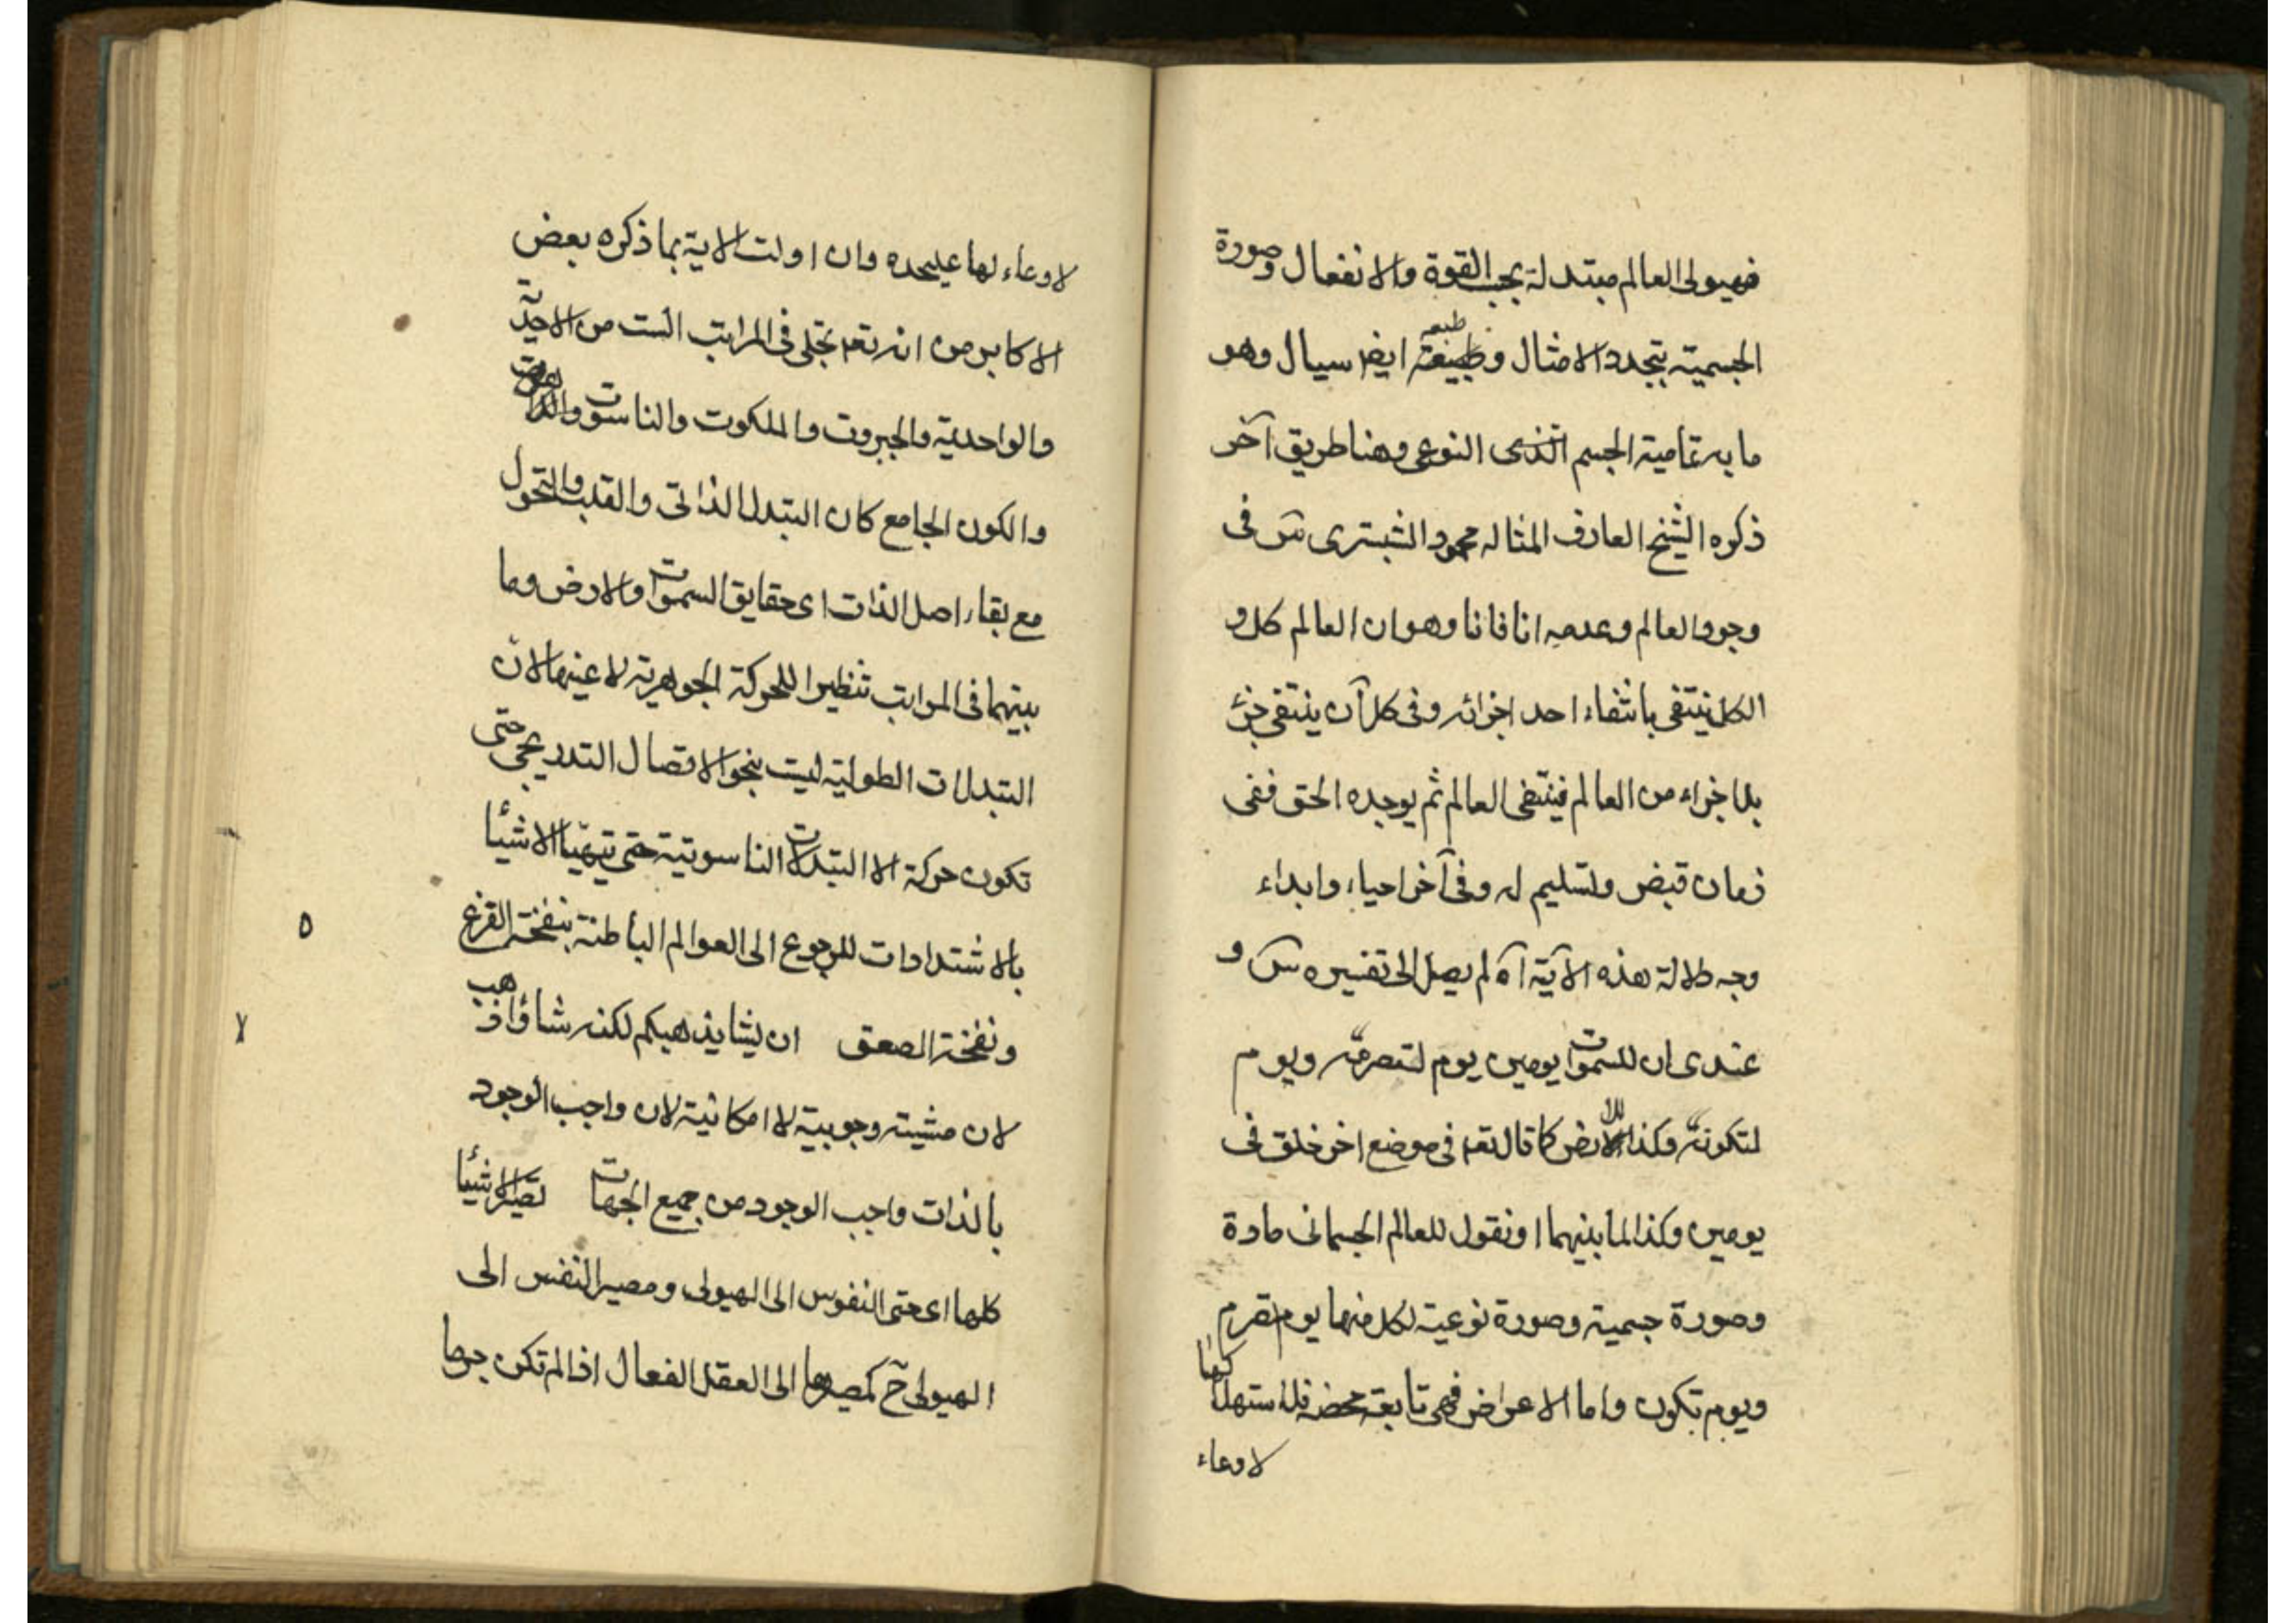 فهيولى العالم متبدلة بحسب القوة والانفعال وصورة
الجسمية بتجدد الامثال وطبيعته ايضا سيال وهو
ما به تمامية الجسم النوعى وهنا طريق آخر
ذكره الشيخ العارف المتاله محمود الشبسترى س فى
وجود العالم وعدمه انا فانا وهو ان العالم كل و
الكل ينتفى بانتفاء احد اجزائه وفى كل آن ينتفى جزء
بل اجزاء من العالم فينتفى العالم ثم يوجده الحق ففى
زمان قبض وتسليم له وفى آخر احياء وابداء
وجه دلالة هذه الآية آه لم يصل الى تفسيره س و
عندى ان للسموات يومين يوم لتصرمه ويوم
لتكونه وكذا للارض كما قال تعم فى موضع اخر خلق فى
يومين وكذا لما بينهما او نقول للعالم الجسمانى مادة
وصورة جسمية وصورة نوعية لكل منها يوم تصرم
ويوم تكون واما الاعراض فهى تابعة محضة فلاستهلاكها
لاوعاء
لاوعاء لها عليحده وان اولت الاية بما ذكره بعض
الاكابر من انه تعم تجلى فى المراتب الست من الاحدية
والواحدية والجبروت والملكوت والناسوت
والكون الجامع كان التبدل الذاتى والقلب والتحول
مع بقاء اصل الذات اى حقايق السموات والارض وما
بينهما فى المراتب تنظيرا للحركة الجوهرية لا عينها لان
التبدلات الطولية ليست بنحو الاتصال التدريجى حتى
تكون حركة الا التبدلات الناسوتية حتى تتهيأ الاشيأ
بالاشتدادات للرجوع الى العوالم الباطنة بنفخة الفزع
ونفخة الصعق ان يشا يذهبكم لكنه شاؤ اذهب
لان مشيته وجوبية لا امكانية لان واجب الوجود
بالذات واجب الوجود من جميع الجهات تصير الاشيأ
كلها اى حتى النفوس الى الهيولى ومصير النفس الى
الهيولى ح كمصيرها الى العقل الفعال اذا لم تكن جرما